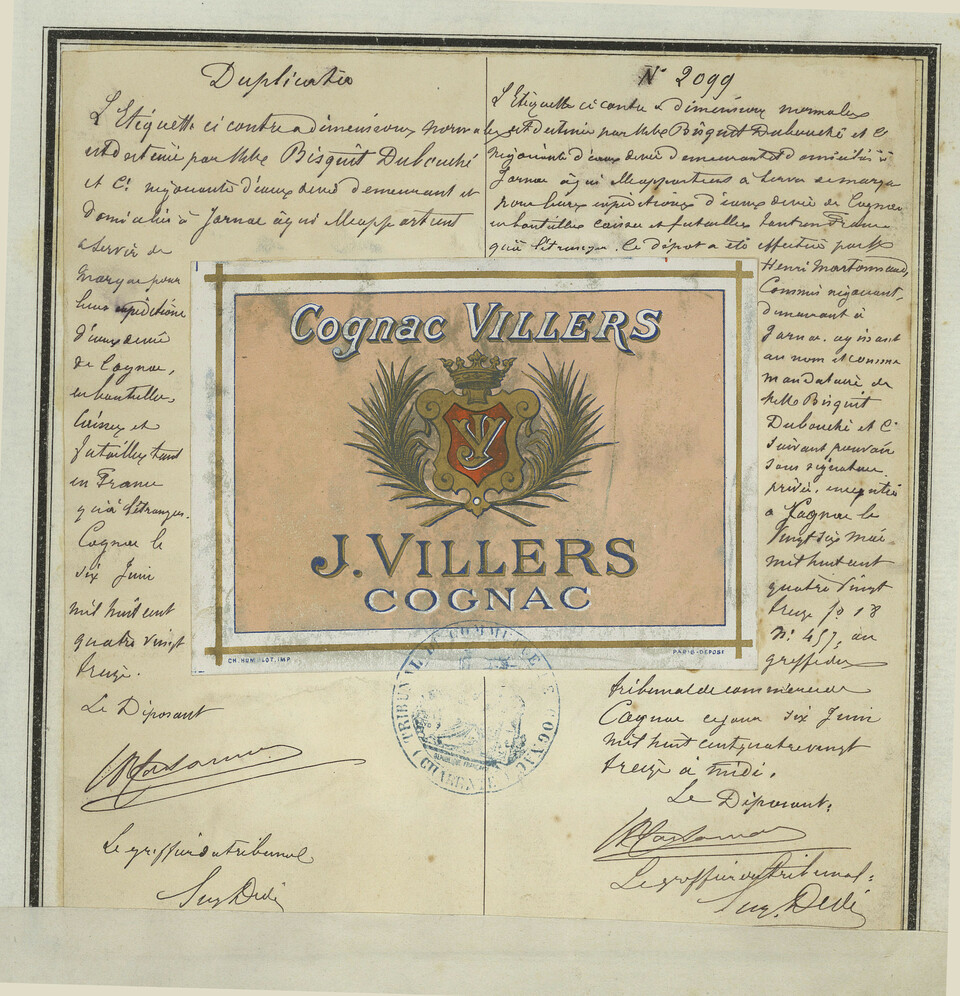 Duplicata
L'Etiquette ci contre a dimensions norma
est destinée par Mrs Bisquit Dubouché
et Cie négociants d'eaux de vie demeurant et
domiciliés à Jarnac à qui elle appartient
à servir de
marque pour
leurs expéditions
d'eaux de vie
de Cognac,
en bouteilles,
caisses et
futailles tant
en France
qu'à l'étranger.
Cognac le
six Juin
mil huit cent
quatre vingt
treize.
Le Déposant
Le greffier du tribunal
N° 2099
L'Etiquette ci contre a dimensions normales
est destinée par Mrs Bisquit Dubouché et Cie
négociants d'eaux de vie demeurant et domiciliés à
Jarnac à qui elle appartient à servir de marque
pour leurs expéditions d'eaux de vie de Cognac
en bouteilles caisses et futailles tant en France
qu'à l'étranger. Ce dépot a été effectué par Mr
Henri Martonnaud,
Commis négociant,
demeurant à
Jarnac, agissant
au nom et comme
mandataire de
Mrs Bisquit
Dubouché et Cie
suivant pouvoir
sous signature
privée, enregistré
à Cognac le
vingt six mai
mil huit cent
quatre vingt
treize fo 18
No 457, au
greffe du
tribunal de commerce de
Cognac ce jour six Juin
mil huit cent quatre vingt
treize à midi.
Le Déposant:
Le greffier du tribunal:
Cognac VILLERS
J. VILLERS
COGNAC
CH. HUMBLOT, IMP.
PARIS-DEPOSÉ
TRIBUNAL DE COMMERCE DE COGNAC
(CHARENTE)
RÉPUBLIQUE FRANÇAISE